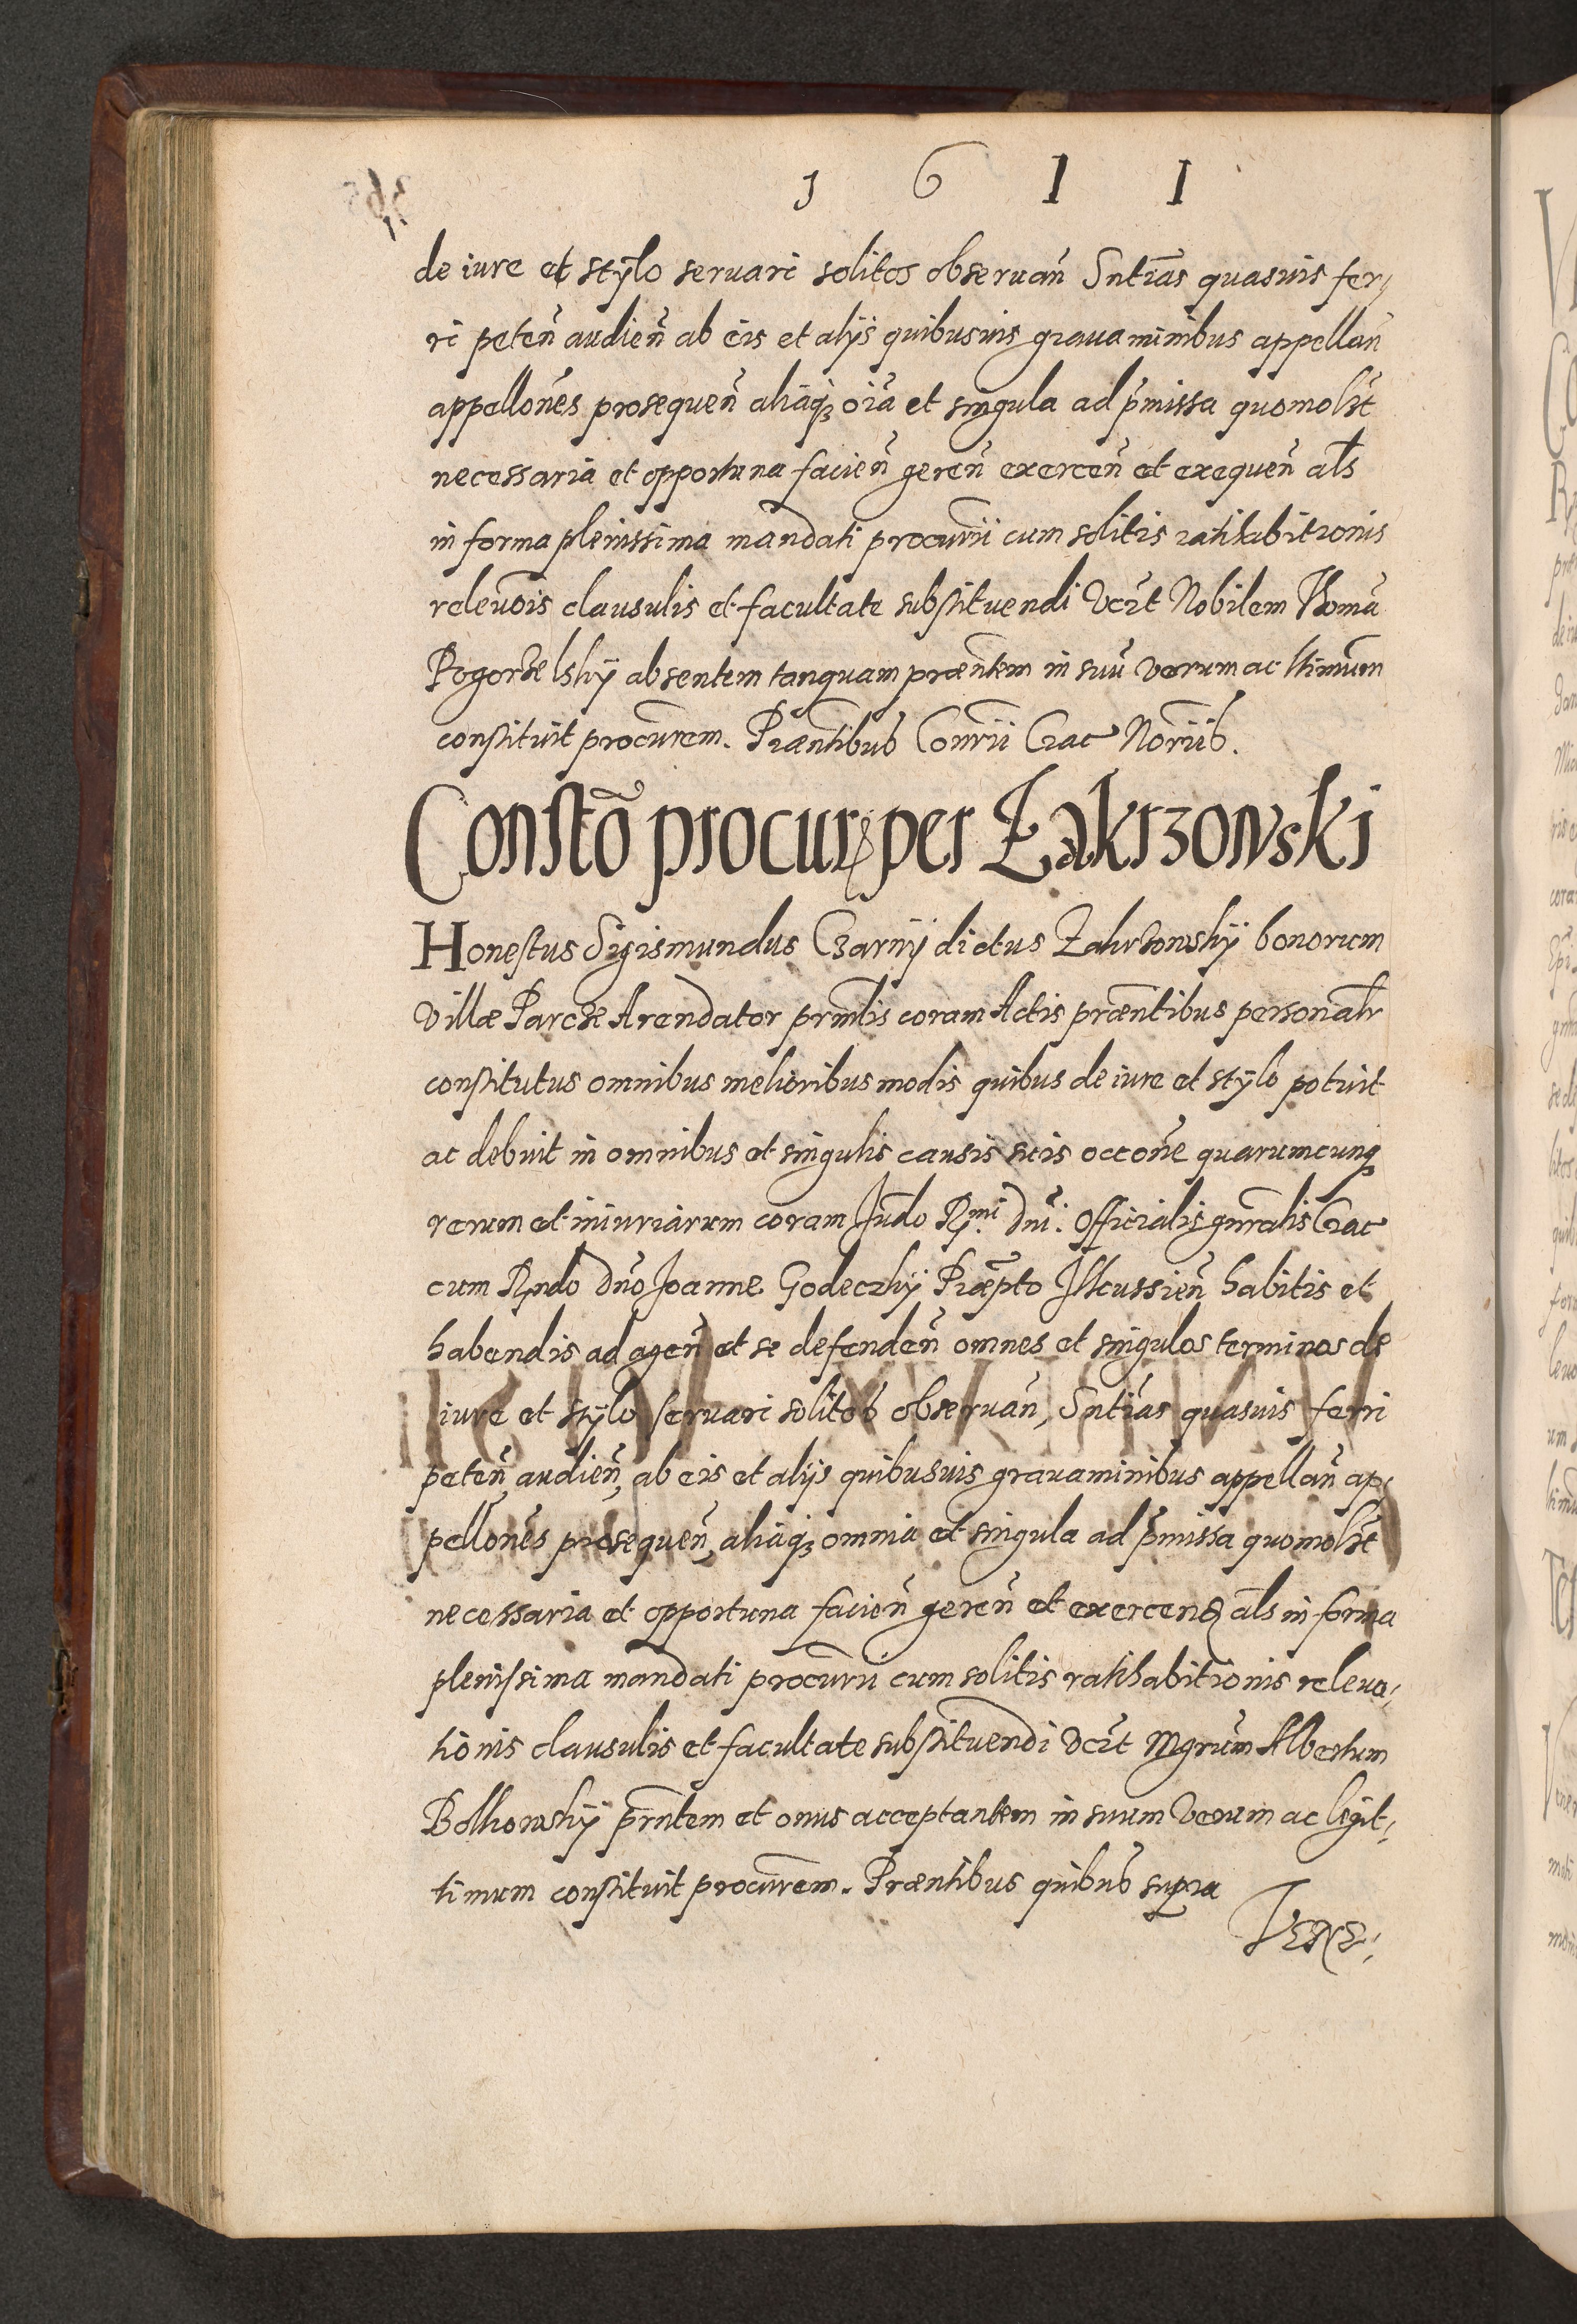 1 6 1 1
de iure et stÿlo seruari solitos obseruan̄ Sntīas quasuis fer,
ri peten̄ audien̄ ab eis et alijs quibusuis grauaminibus appellan̄
appellon̄es prosequen̄ aliaq₃ oīa et singula ad p̄missa quomolib̄t
necessaria et opportuna facien̄ geren̄ exercen̄ et exequen̄ al̄s
in forma plenissima mandati procurīi cum solitis ratihabitionis
releuōis clausulis et facultate substituendi Vc̄t Nobilem Thomā
Pogorzelskÿ absentem tanquam præn̄tem in suū verum ac ltimūm
constituit procur̄em. Præn̄tibus Con̄rii Crac Nor̄iib.
Constō procur per Zakrzowski
Honestus Sigismundus Czarnÿ dictus Zakrzowskÿ bonorum
Villæ Parcze Arendator prin̄lis coram Actis præn̄tibus personalr̄
constitutus omnibus melioribus modis quibus de iure et stÿlo potuit
ac debuit in omnibus et singulis causis suis occon̄e quarumcunq₃
rerum et iniuriarum coram Jud̄o R.mi dn̄i. Officialis gn̄ralis Crac
cum Rn̄do dn̄o Joanne Godeczkÿ Præp̄to Ilkussien̄ habitis et
habendis ad agen̄ et se defenden̄ omnes et singulos terminos de
iure et stÿlo seruari solitos obseruan̄, Sntīas quasuis ferri
peten̄, audien̄, ab eis et alijs quibusuis grauaminibus appellan̄ ap,
pellon̄es prosequen̄, aliaq₃ omnia et singula ad p̄missa quomolib̄t
necessaria et opportuna facien̄ geren̄ et exercen̄ al̄s in forma
plenissima mandati procur̄ii cum solitis ratihabitionis releua,
tionis clausulis et facultate substituendi Vc̄t Mgr̄um Albertum
Bolkowskÿ prn̄tem et onus acceptantem in suum Verum ac legit,
timum constituit procur̄em. Præn̄tibus quibus supra
VENE,